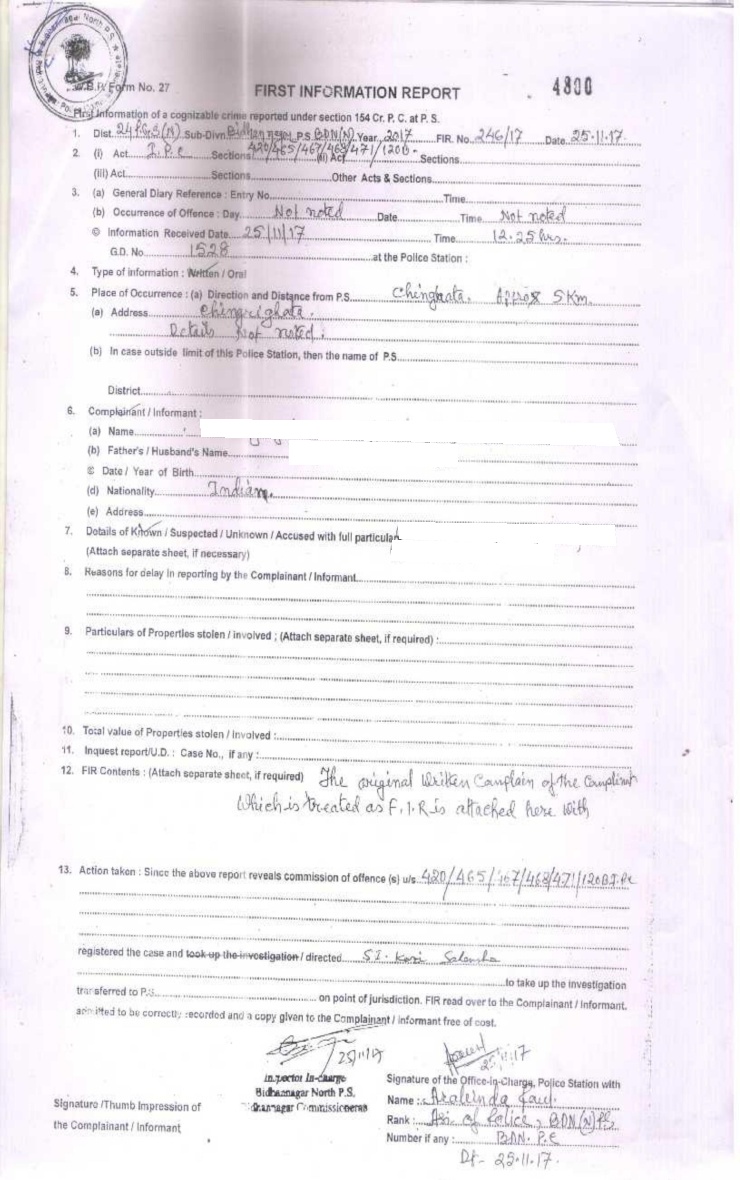 W.B.P. Form No. 27
FIRST INFORMATION REPORT
4800
First Information of a cognizable crime reported under section 154 Cr. P. C. at P. S.
1. Dist. 24 PGS (N) Sub-Divn. Bidhannagar P.S BDN(N) Year. 2017 FIR. No. 246/17 Date 25.11.17.
2. (i) Act I.P.C Sections 420/465/467/468/471/120B. (ii) Act Sections.
(iii) Act Sections Other Acts & Sections
3. (a) General Diary Reference : Entry No. Time
(b) Occurrence of Offence : Day Not noted Date Time Not noted
© Information Received Date 25/11/17 Time 12.25 hrs.
G.D. No. 1528 at the Police Station :
4. Type of information : Written / Oral
5. Place of Occurrence : (a) Direction and Distance from P.S. Approx 5 Km.
(a) Address Chingrighata.
Details Not noted.
(b) In case outside limit of this Police Station, then the name of P.S.
District
6. Complainant / Informant :
(a) Name
(b) Father's / Husband's Name
© Date / Year of Birth
(d) Nationality Indian.
(e) Address
7. Details of Known / Suspected / Unknown / Accused with full particular
(Attach separate sheet, if necessary)
8. Reasons for delay in reporting by the Complainant / Informant
9. Particulars of Properties stolen / involved ; (Attach separate sheet, if required) :
10. Total value of Properties stolen / involved :
11. Inquest report/U.D. : Case No., if any :
12. FIR Contents : (Attach separate sheet, if required) The original Written Complain of the
Which is treated as F.I.R is attached here with
13. Action taken : Since the above report reveals commission of offence (s) u/s. 420/465/467/468/471/120B I.PC
registered the case and took up the investigation / directed S.I.
to take up the investigation
transferred to P.S. on point of jurisdiction. FIR read over to the Complainant / Informant,
admitted to be correctly recorded and a copy given to the Complainant / Informant free of cost.
25/11/17
25.11.17
Inspector In-charge
Bidhannagar North P.S.
Bidhannagar Commissionerate
Signature of the Office-in-Charge, Police Station with
Name :
Signature /Thumb Impression of
Rank : of Police, BDN(N) PS
the Complainant / Informant
Number if any : BDN. P.C
Dt- 25.11.17.